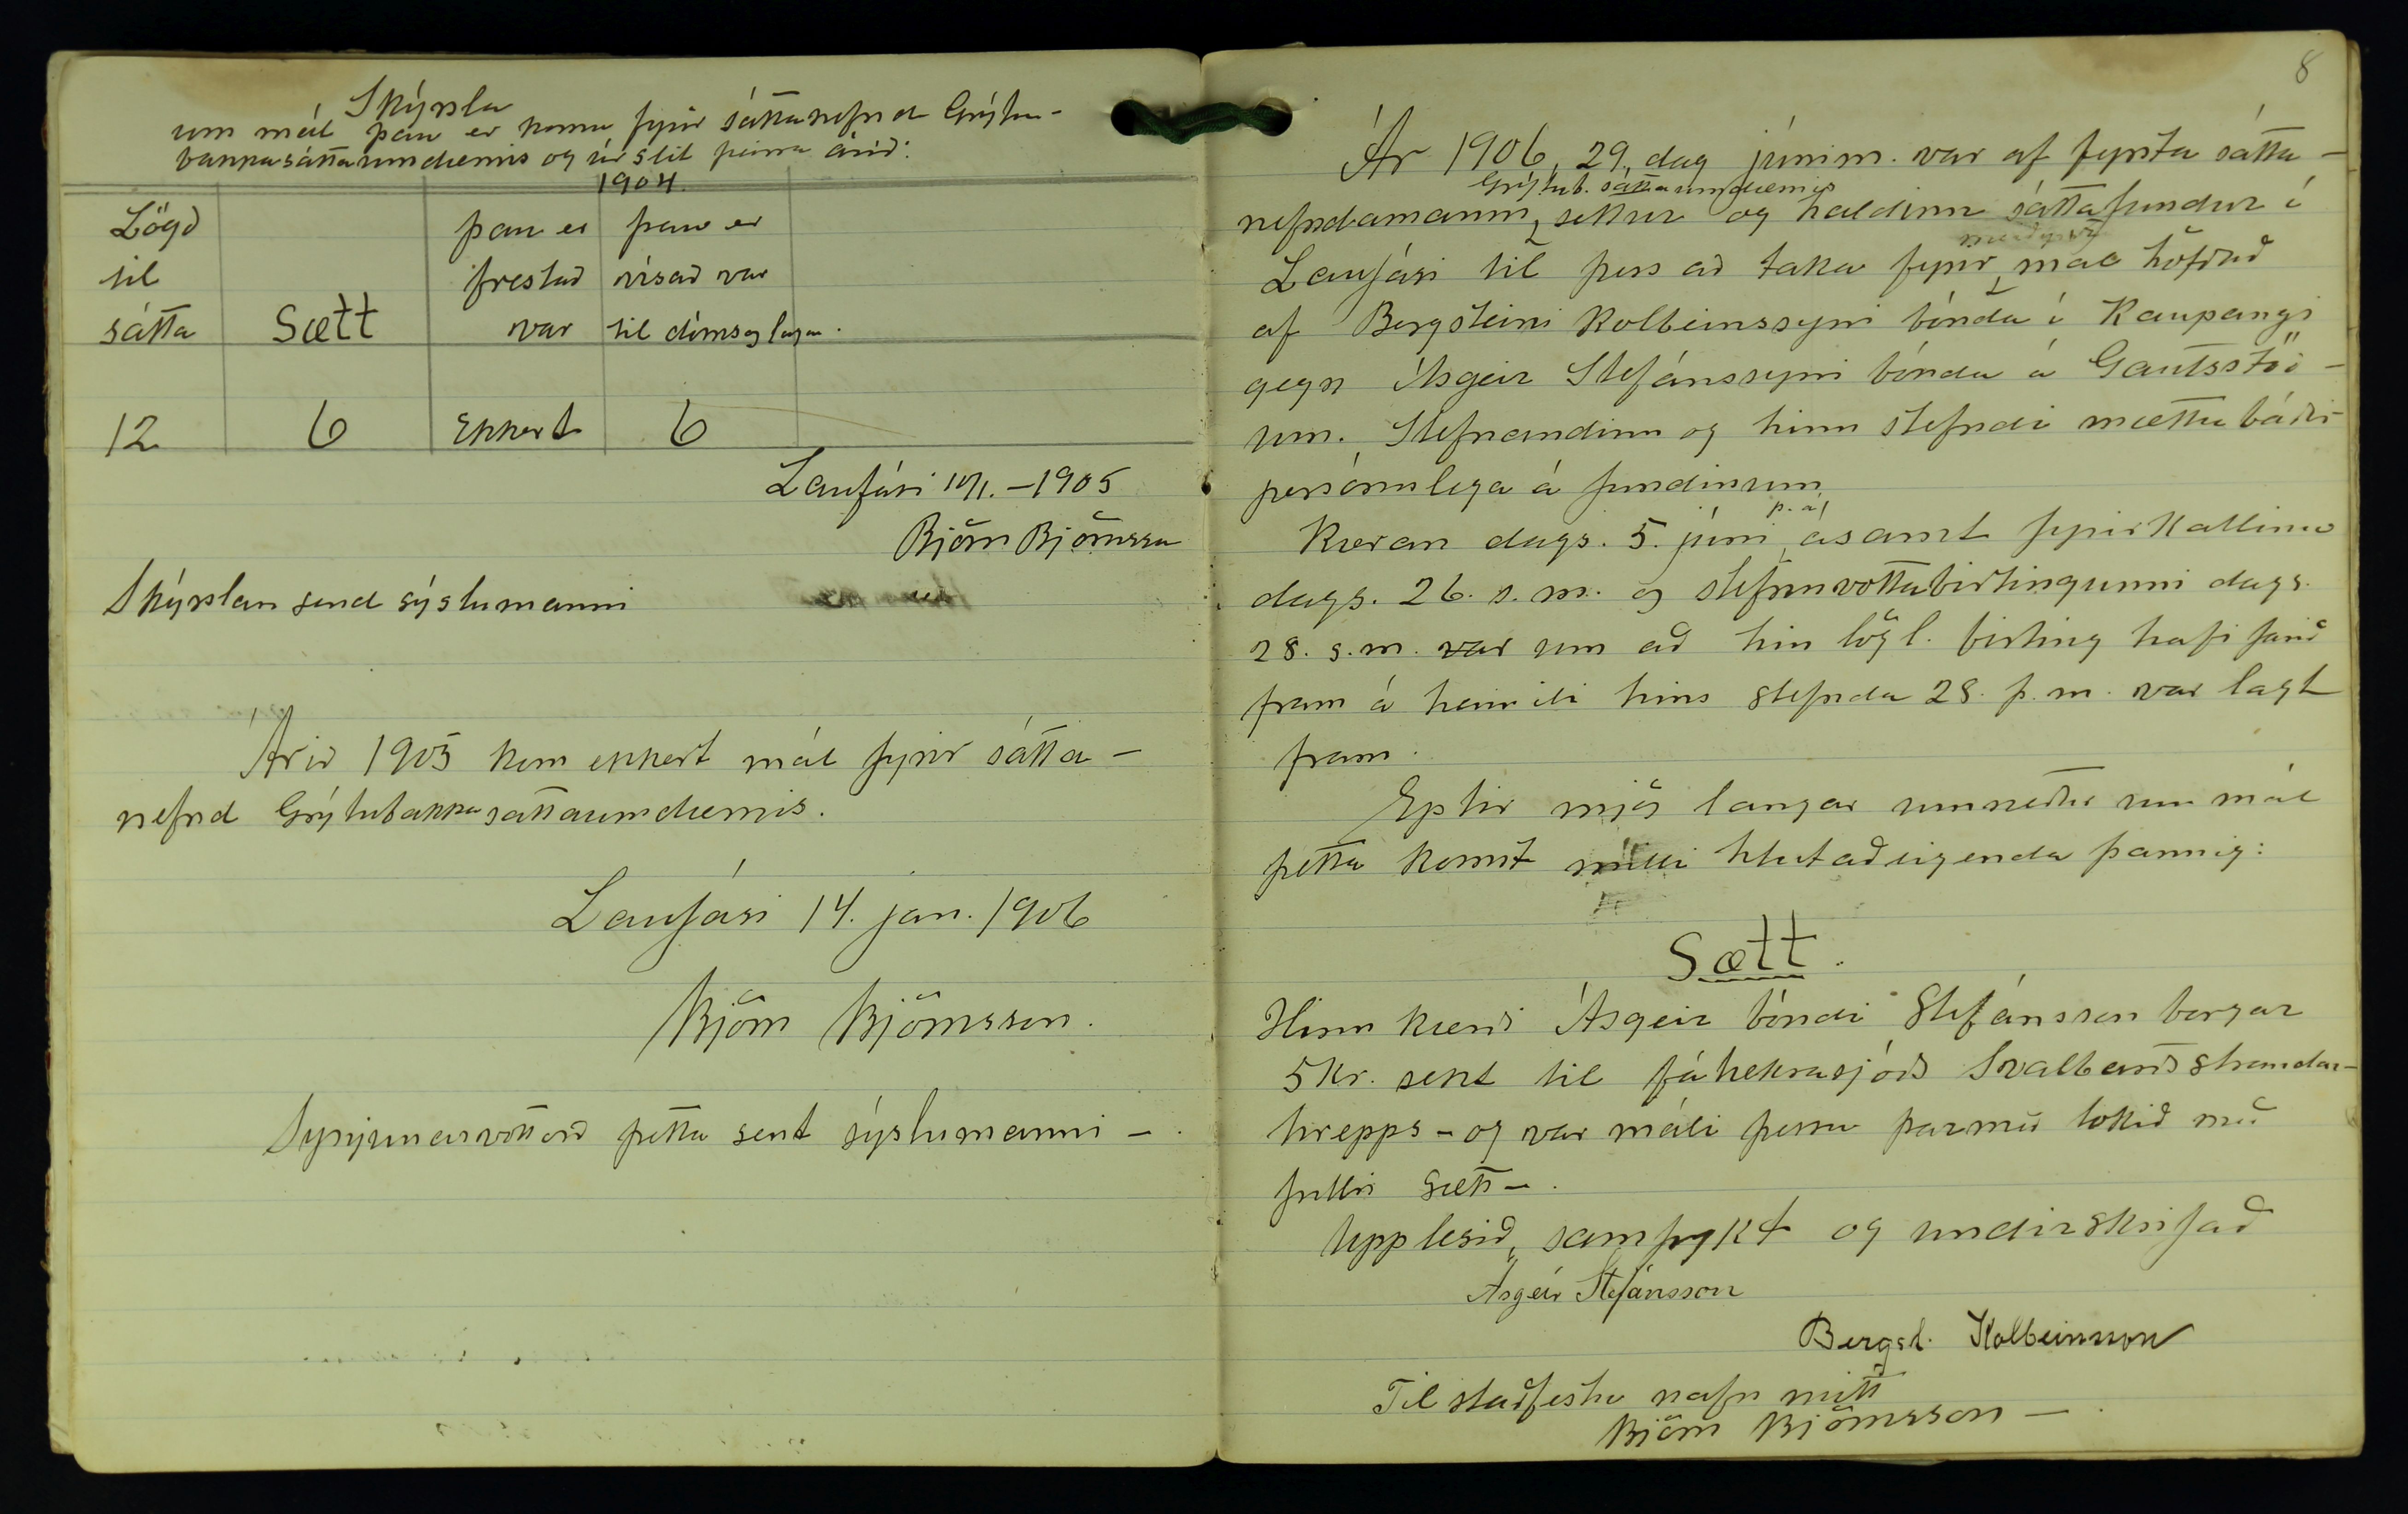 Skýrsla
um mál þau er komu fyrir sáttanefnd Grýtu-
bakkasáttaumdæmis og úrslit þeirra árið:
1904.
Lögð til sátta | Sætt | þau er frestað var | þau er vísað var til dóms og laga.
12 | 6 | Ekkert | 6
Laufási 10/1. - 1905
Björn Björnsson
Skýrslan send sýslumanni
Árið 1905 kom ekkert mál fyrir sátta-
nefnd Grýtubakkasáttaumdæmis.
Laufási 14. jan. 1906
Björn Björnsson.
Synjunarvottorð þetta sent sýslumanni -
8
Ár 1906, 29. dag júním. var af fyrsta sátta-
Grýtub. sáttaumdæmis
nefndamanni, settur og haldinn sáttafundur í
Laufási til þess að taka fyrir mál höfðað
af Bergsteini Kolbeinssyni bónda í Kaupangi
gegn Ásgeir Stefánssyni bónda á Gautsstöð-
um. Stefnandinn og hinn stefndi mættu báðir
persónulega á fundinum.
þ.á.
Kæran dags. 5. júní, ásamt fyrirkallinu
dags. 26. s.m. og stefnuvottabirtingunni dags.
28. s.m. var um að hin lögl. birting hafi farið
fram á heimili hins stefnda 28. þ.m. var lagt
fram.
Eptir mjög langar umræður um mál
þetta komst milli hlutaðeigenda þannig:
Sætt.
Hinn kærði Ásgeir bóndi Stefánsson borgar
5 kr. sekt til fátækrasjóðs Svalbarðsstrandar-
hrepps - og var máli þessu þar með lokið með
fullri sætt -.
Upplesið, samþykt og undirskrifað
Ásgeir Stefánsson
Bergst. Kolbeinsson
Til staðfestu nafn mitt
Björn Björnsson -